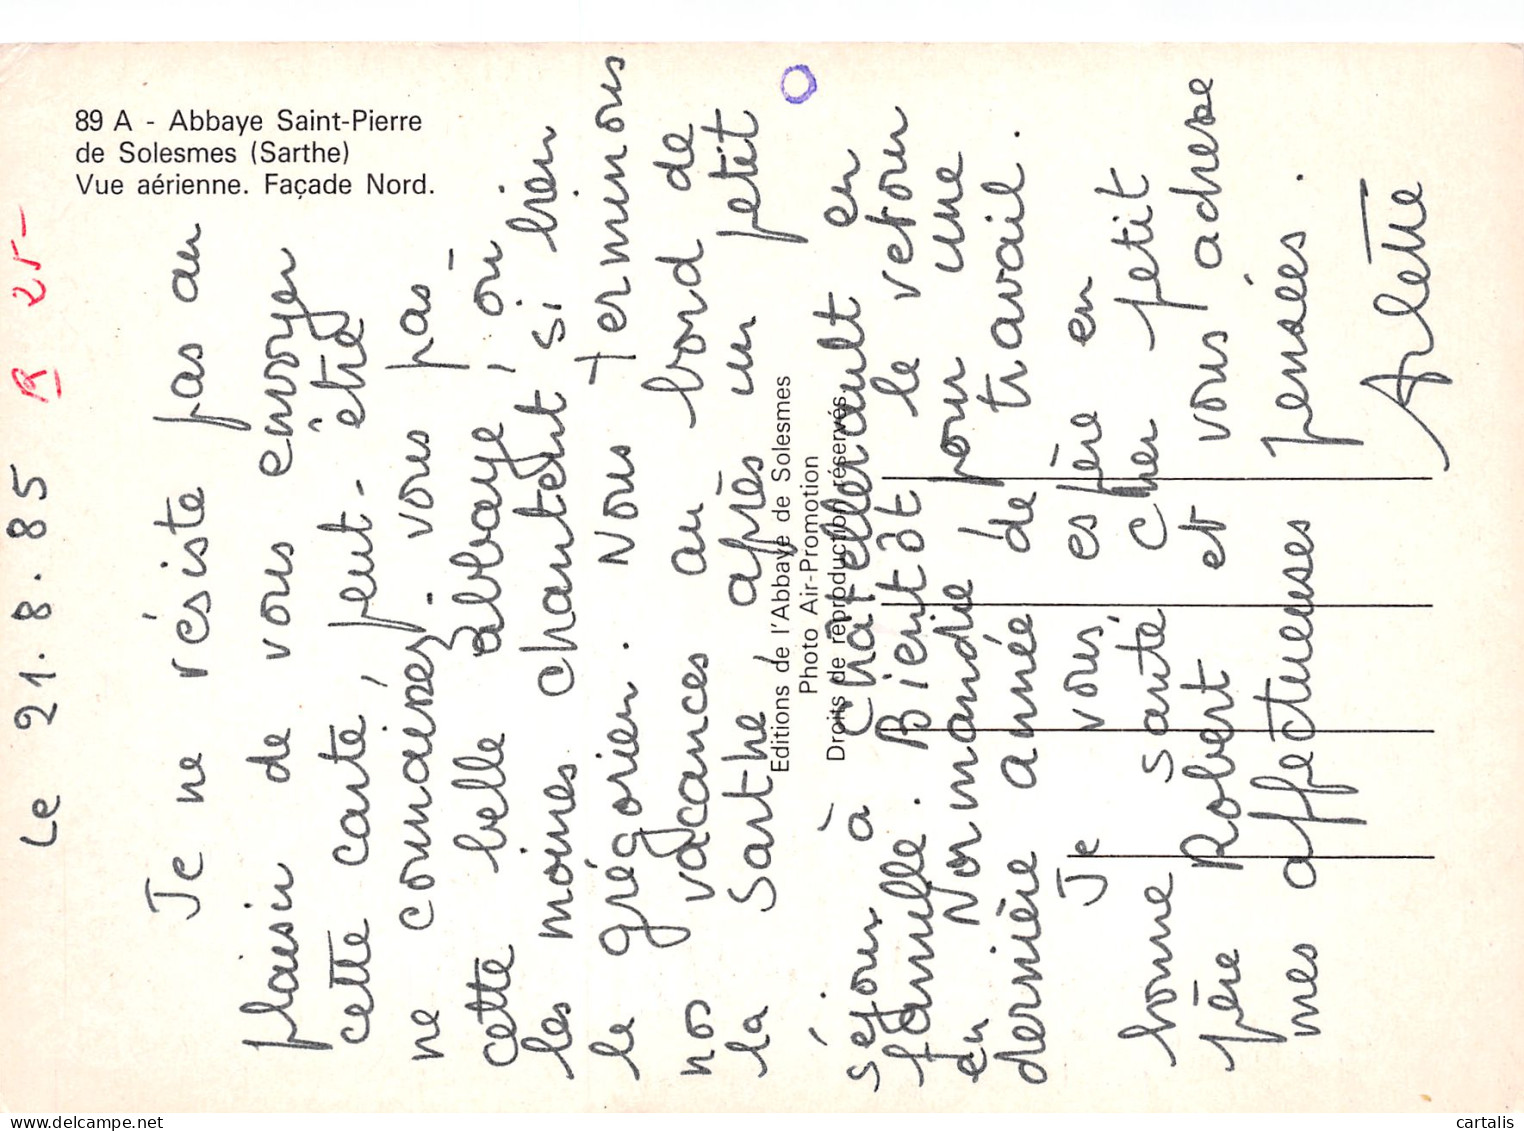 89 A - Abbaye Saint-Pierre
de Solesmes (Sarthe)
Vue aérienne. Façade Nord.
R 25-
Le 21.8.85
Je ne résiste pas au
plaisir de vous envoyer
cette carte, peut-être
ne connaissez-vous pas
cette belle abbaye, où
les moines chantent si bien
le grégorien. Nous terminons
nos vacances au bord de
la Sarthe, après un petit
séjour à Châtellerault en
famille. Bientôt le retour
en Normandie pour une
dernière année de travail.
Je vous espère en
bonne santé cher petit
père Robert et vous adresse
mes affectueuses pensées.
Arlette
Editions de l'Abbaye de Solesmes
Photo Air-Promotion
Droits de reproduction réservés
cartalis